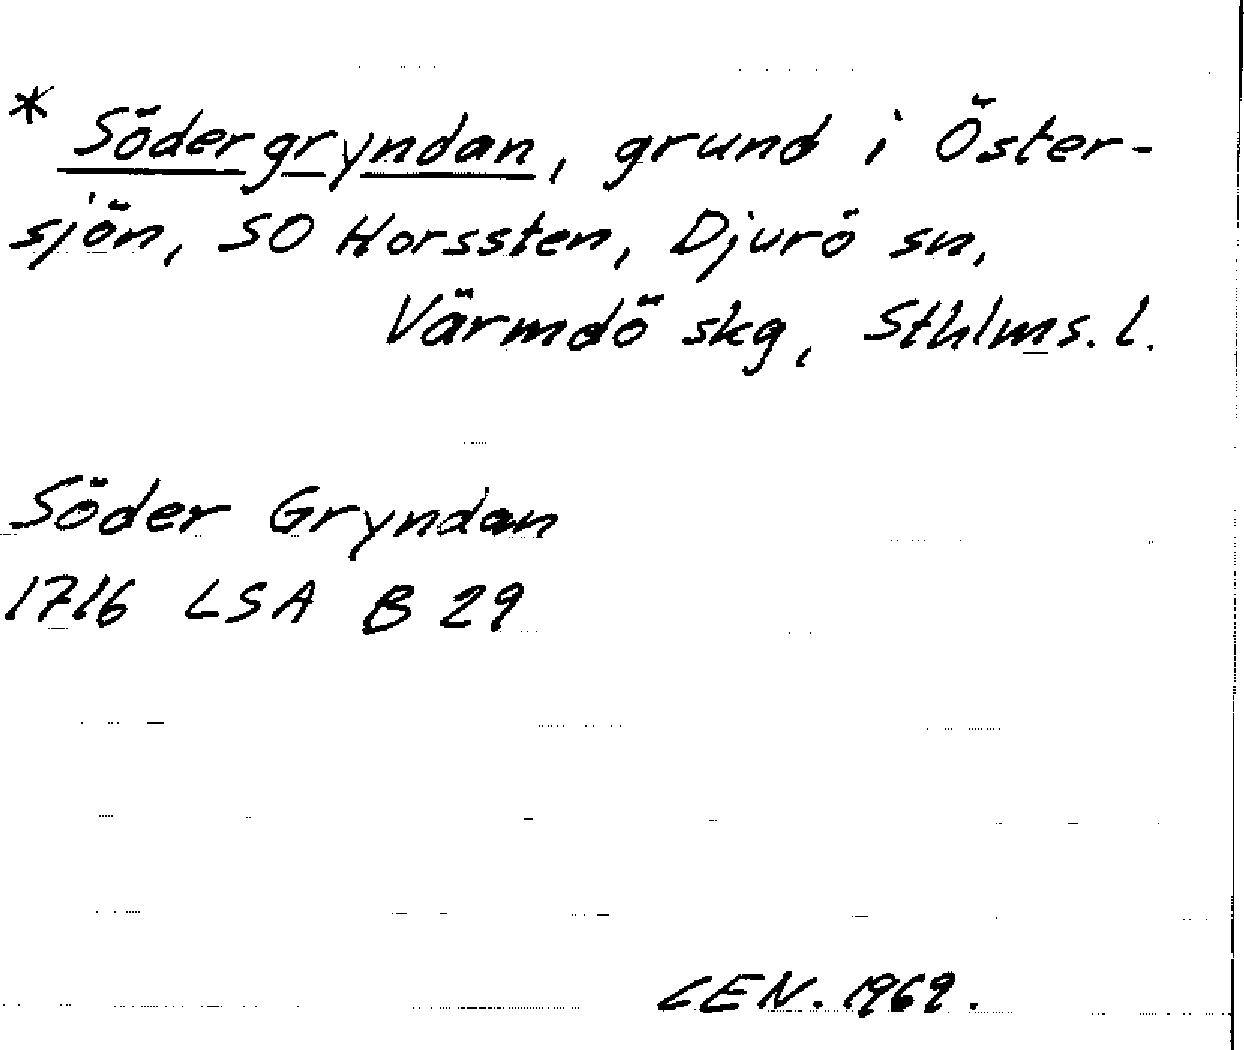 * Södergryndan, grund i Öster-
sjön, SO Horssten, Djurö sn,
Värmdö skg, Sthlms. l.
Söder Gryndan
1716 LSA B 29
CEN. 1969.